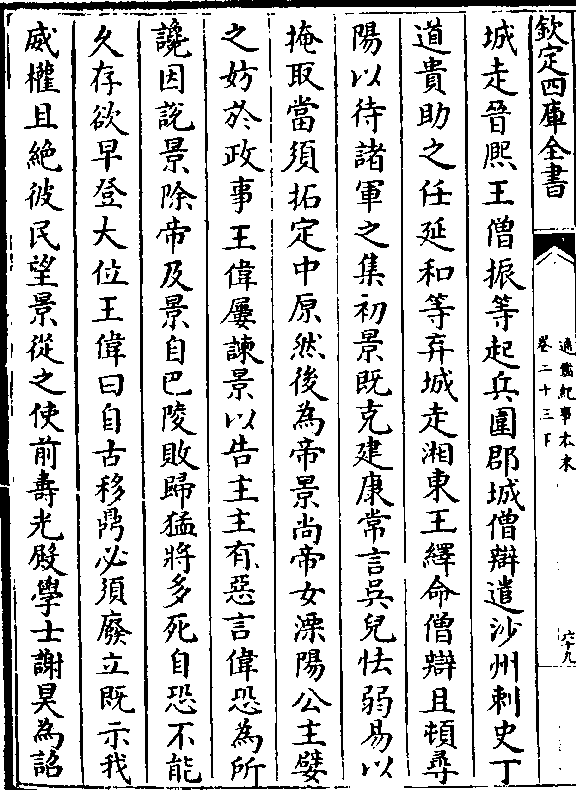 欽定四庫全書
通鑑紀事本末
卷二十三下
六十九
城走晉熙王僧振等起兵圍郡城僧辯遣沙州刺史丁
道貴助之任延和等弃城走湘東王繹命僧辯且頓尋
陽以待諸軍之集初景既克建康常言吳兒怯弱易以
掩取當須拓定中原然後為帝景尚帝女溧陽公主嬖
之妨於政事王偉屢諫景以告主主有惡言偉恐為所
讒因說景除帝及景自巴陵敗歸猛將多死自恐不能
久存欲早登大位王偉曰自古移鼎必須廢立既示我
威權且絶彼民望景從之使前壽光殿學士謝昊為詔